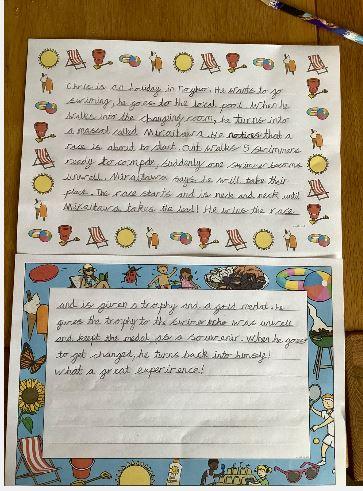 Chris is on holiday in Tokyo. He wants to go
swimming, he goes to the local pool. When he
walks into the changing room, he turns into
a mascot called Miraitowa. He notices that a
race is about to start. Out walks 5 swimmers
ready to compete, suddenly one swimmer becomes
unwell. Miraitowa says he will take their
place. The race starts and its neck and neck until
Miraitowa takes the lead! He wins the race
and is given a trophy and a gold medal. He
gives the trophy to the swimmer who was unwell
and kept the medal as a souvenir. When he goes
to get changed, he turns back into himself!
What a great experience!